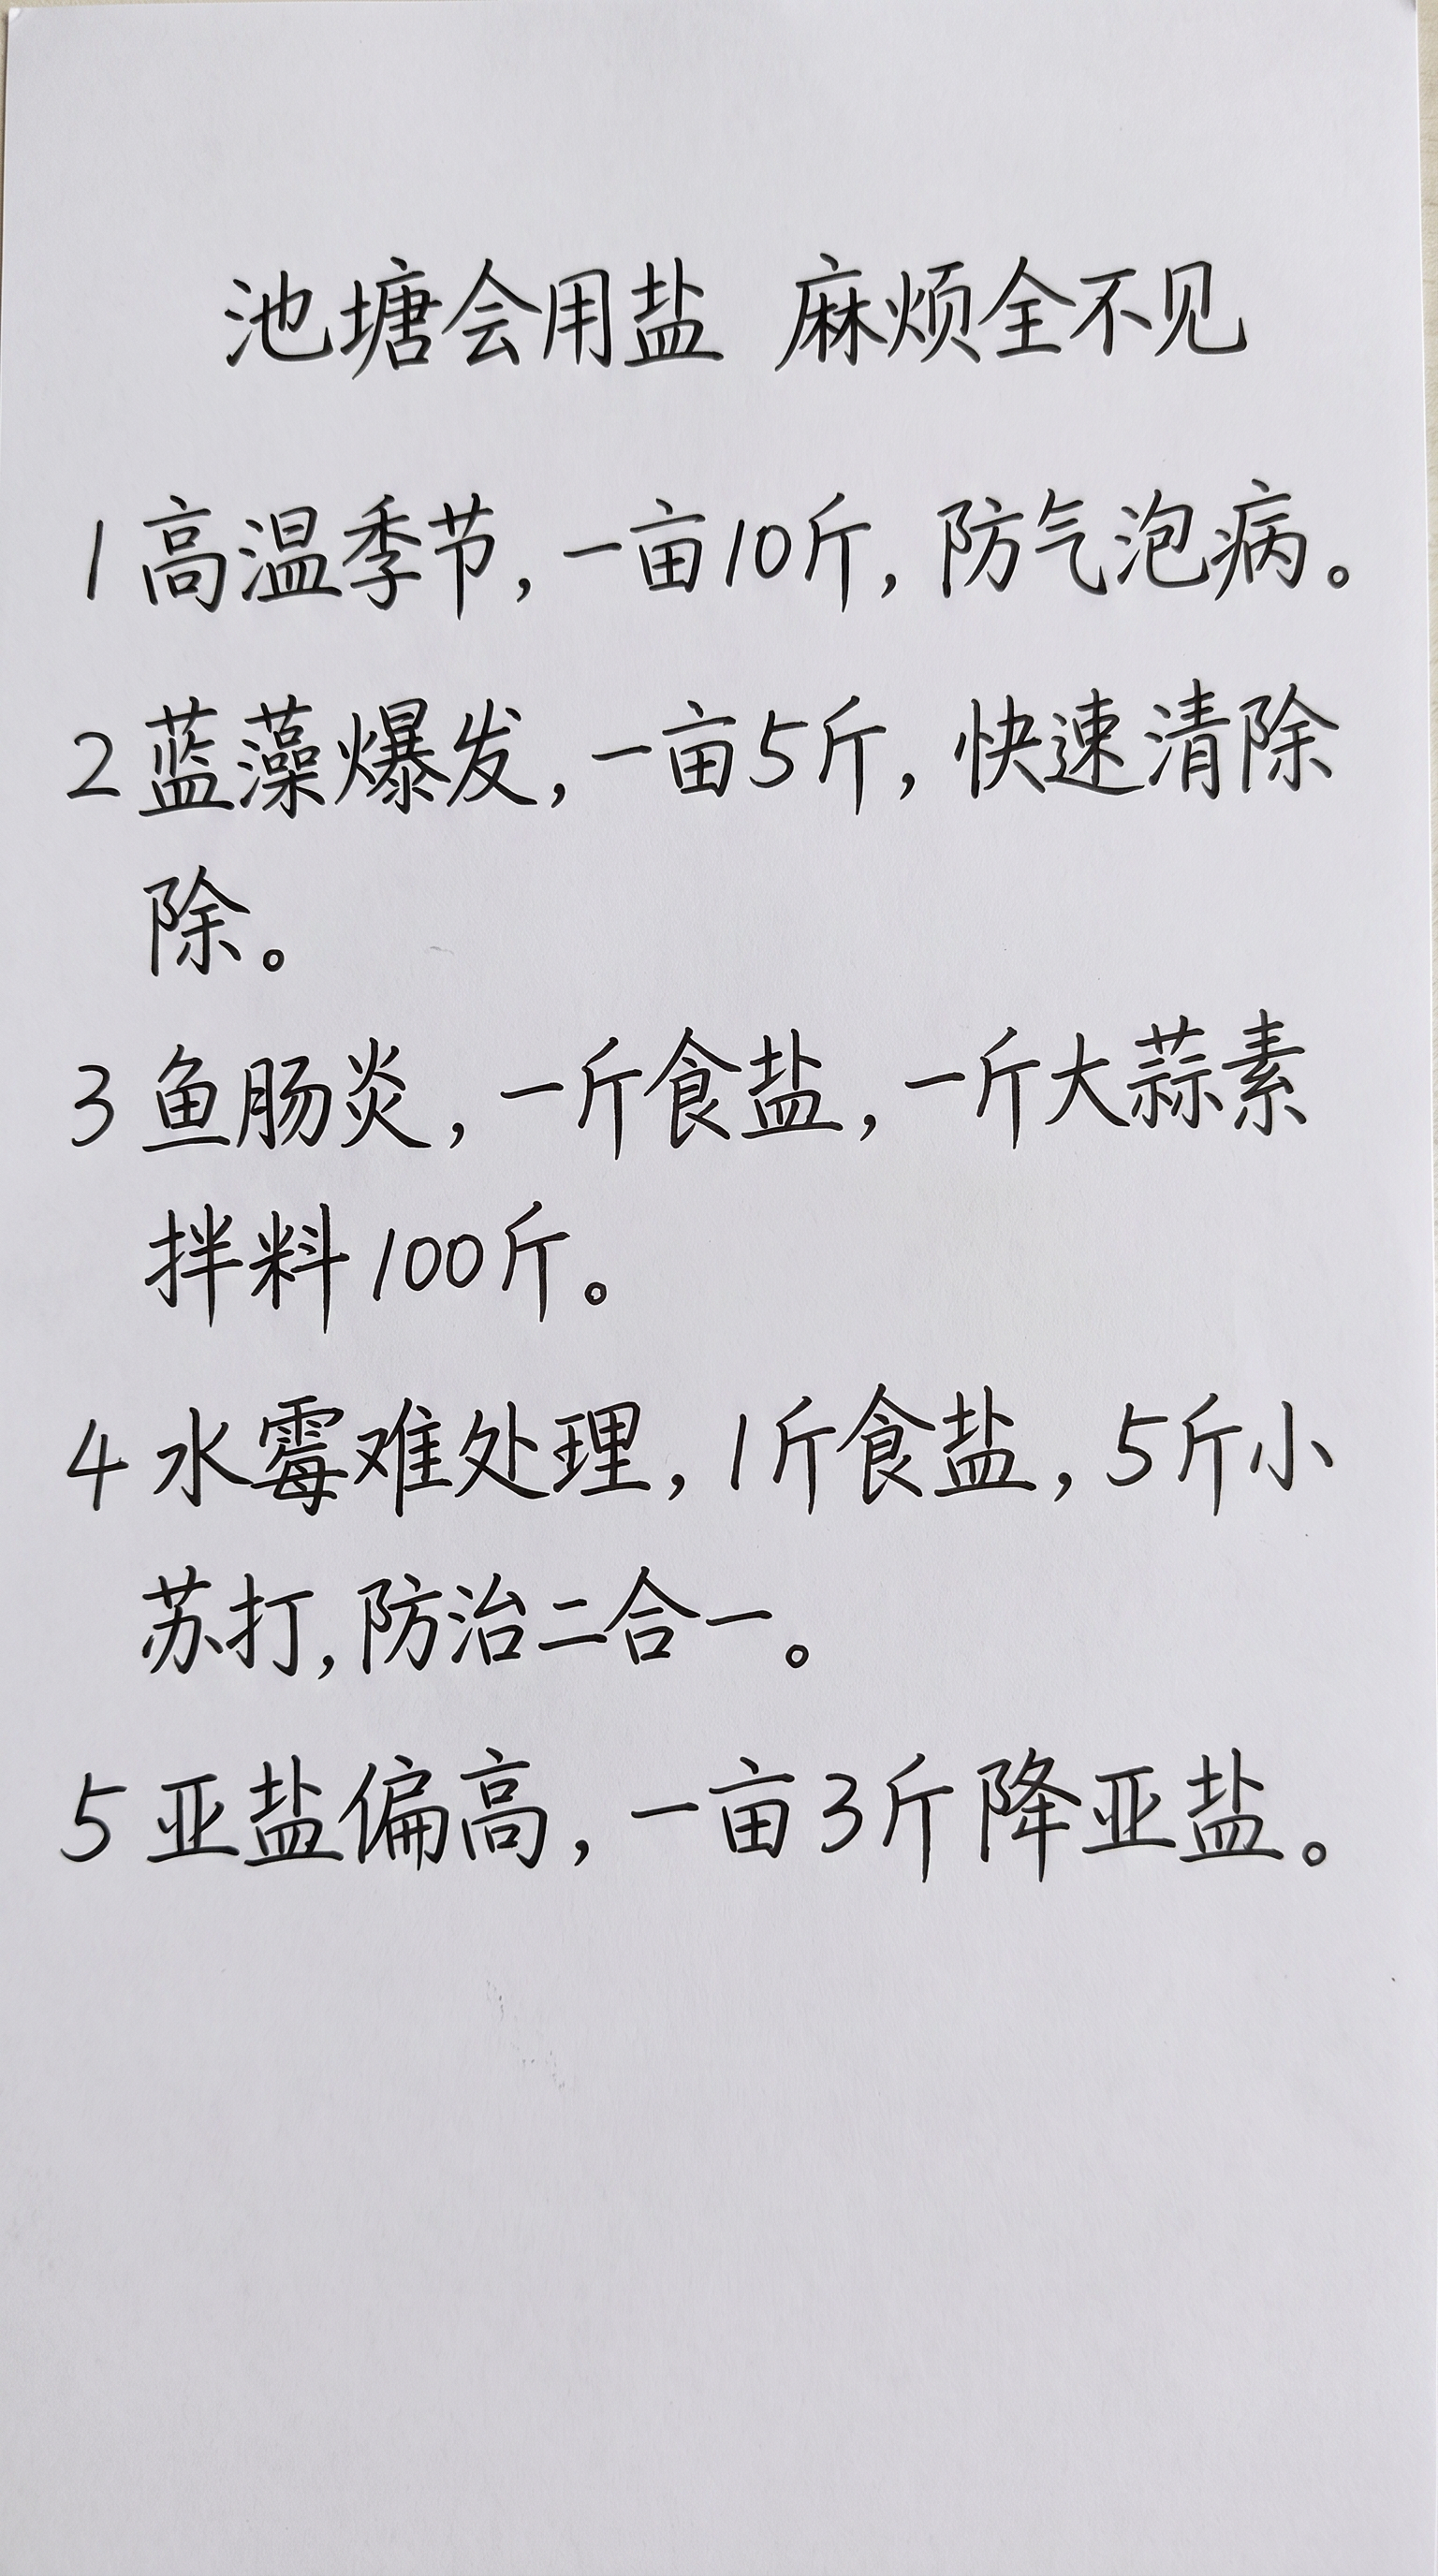 池塘会用盐 麻烦全不见
1 高温季节,一亩10斤,防气泡病。
2 蓝藻爆发,一亩5斤,快速清除
除。
3 鱼肠炎,一斤食盐,一斤大蒜素
拌料100斤。
4 水霉难处理,1斤食盐,5斤小
苏打,防治二合一。
5 亚盐偏高,一亩3斤降亚盐。